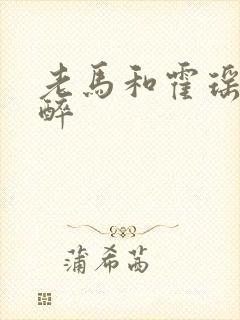 老馬和霍瑶
醉
蒲希茜